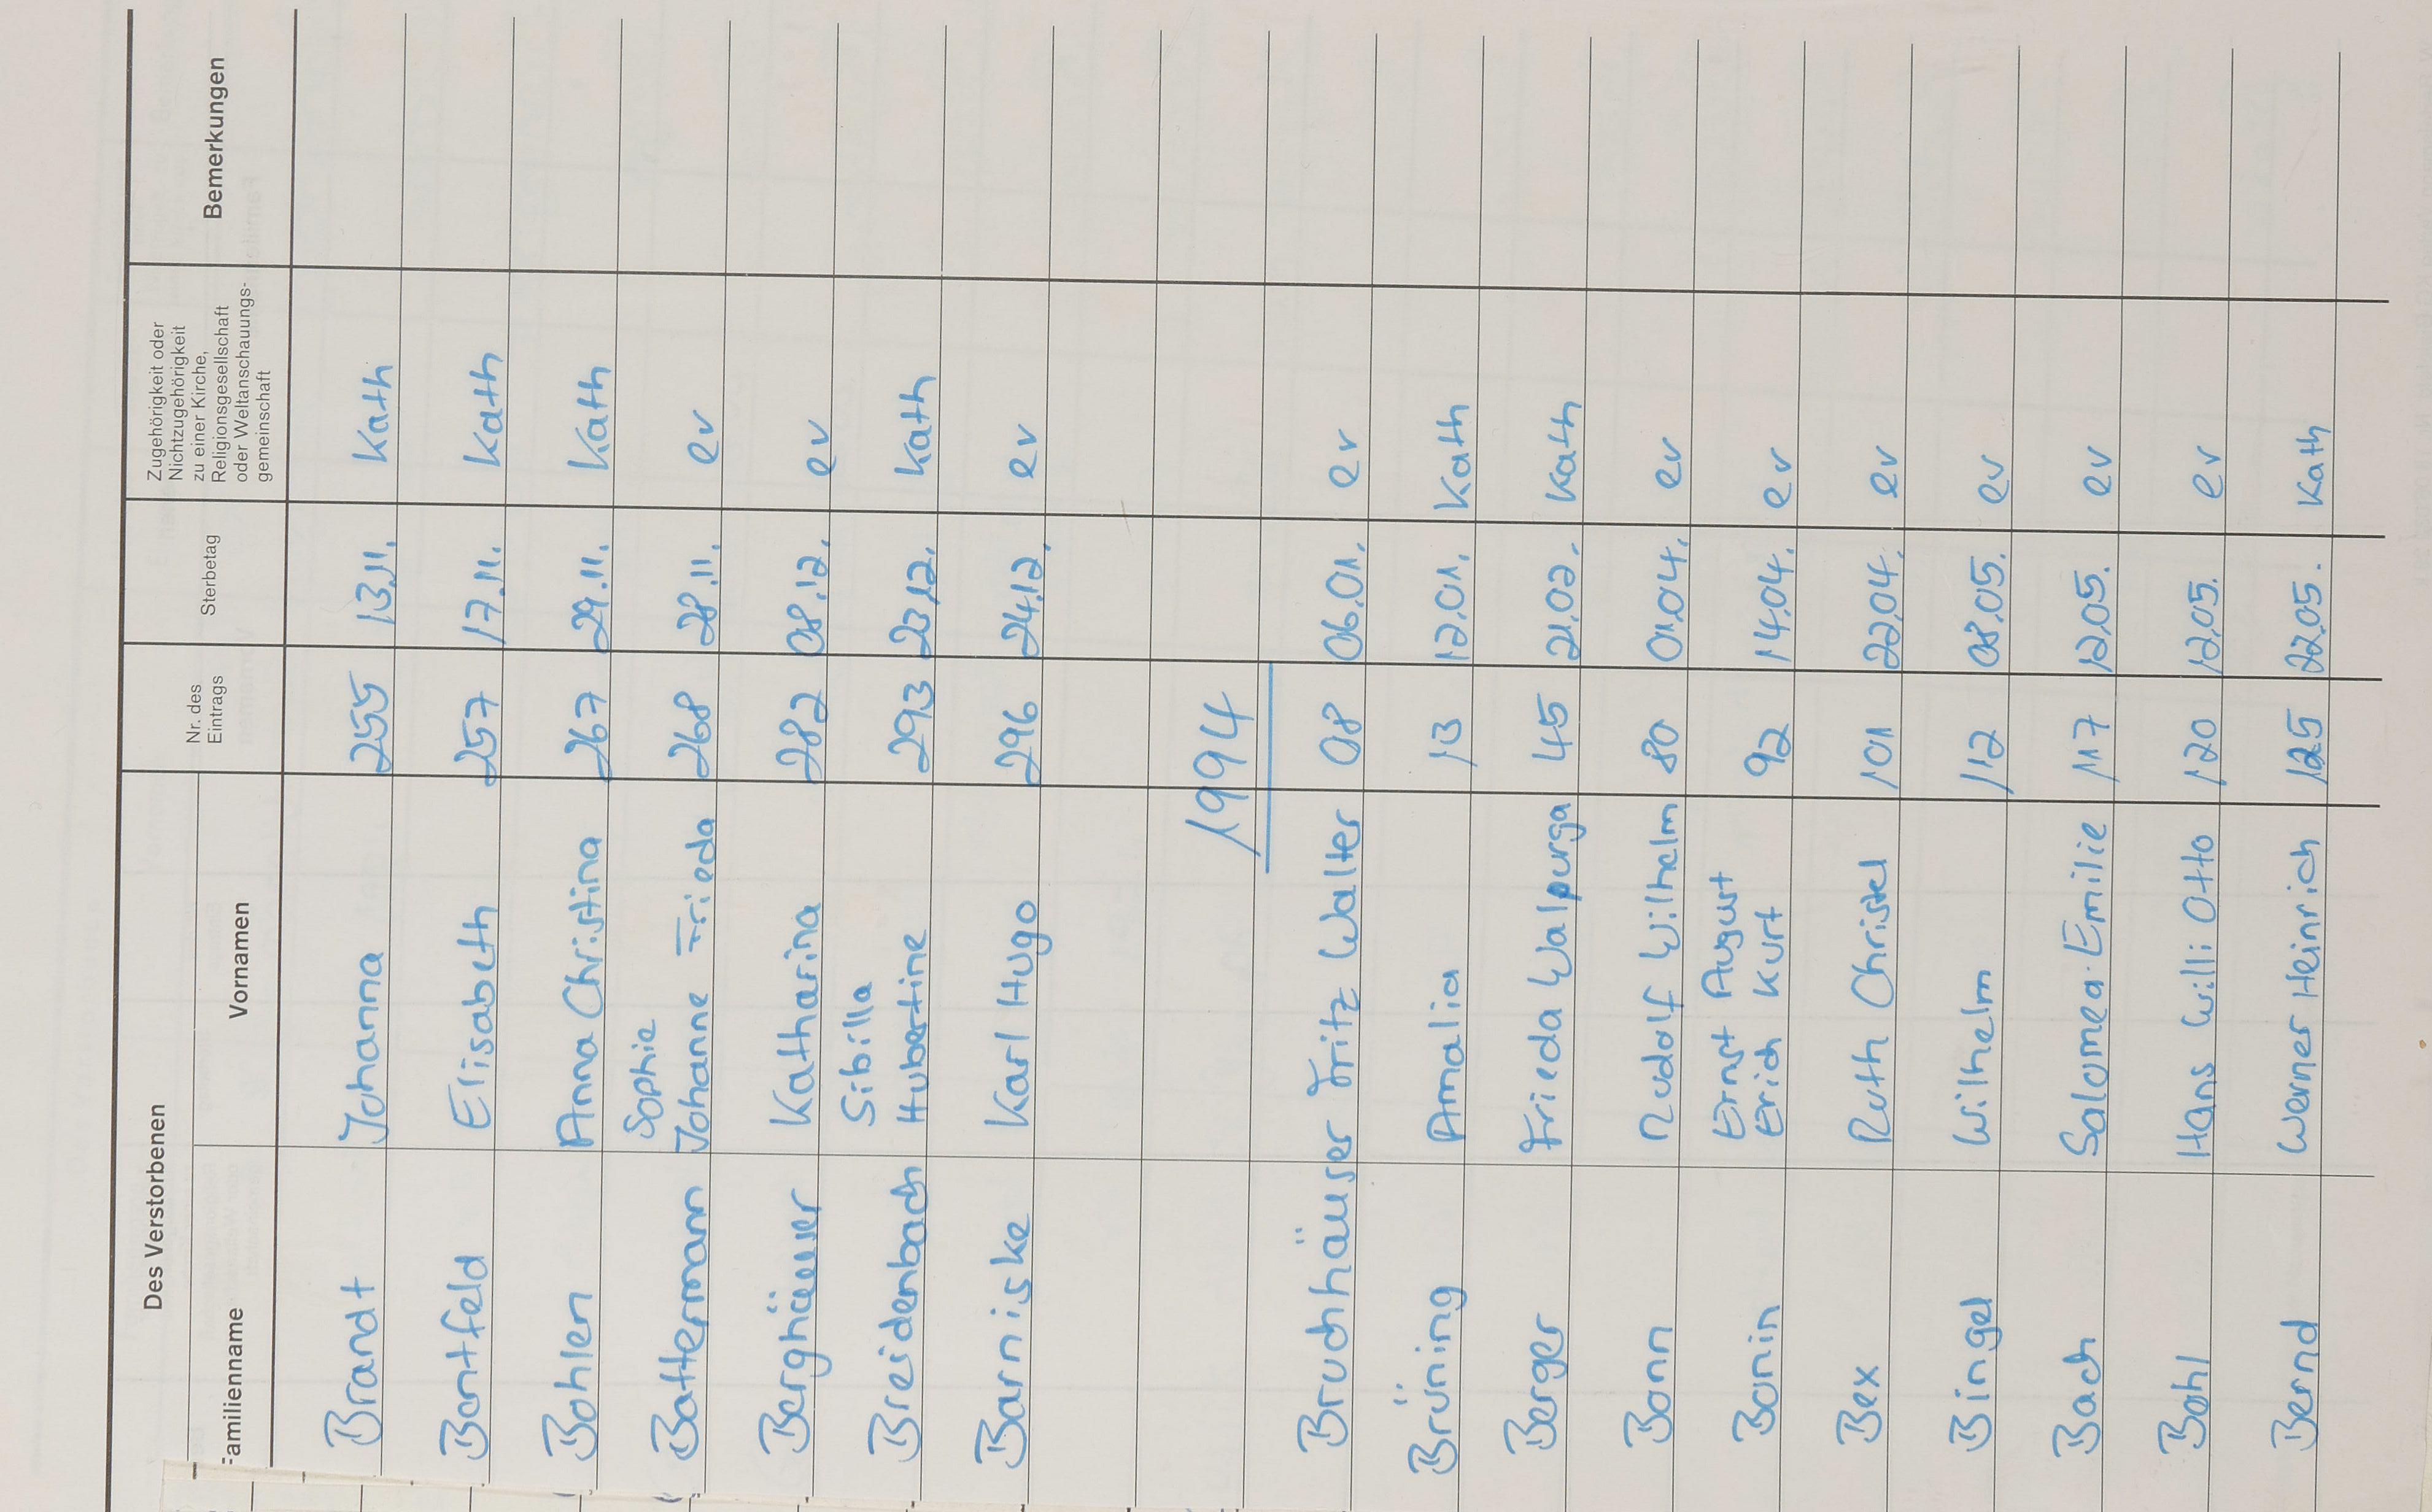 Des Verstorbenen
Familienname Vornamen Nr. des Eintrags Sterbetag Zugehörigkeit oder Nichtzugehörigkeit zu einer Kirche, Religionsgesellschaft oder Weltanschauungs-gemeinschaft Bemerkungen
Brandt Johanna 255 13.11. Kath
Bentfeld Elisabeth 257 17.11. Kath
Bohlen Anna Christina 267 29.11. Kath
Sophie
Battermann Johanne Frieda 268 28.11. ev
Berghäuser Katharina 282 08.12. ev
Sibilla
Breidenbach Hubertine 293 23.12. Kath
Barniske Karl Hugo 296 24.12. ev
1994
Bruchhäuser Fritz Walter 08 06.01. ev
Brüning Amalia 13 12.01. Kath
Berger Frieda Walpurga 45 21.02. Kath
Bonn Rudolf Wilhelm 80 01.04. ev
Ernst August
Bonin Erich Kurt 92 14.04. ev
Bex Ruth Christel 101 22.04. ev
Bingel Wilhelm 112 08.05. ev
Bach Salomea Emilie 117 12.05. ev
Bohl Hans Willi Otto 120 12.05. ev
Bernd Werner Heinrich 125 22.05. Kath